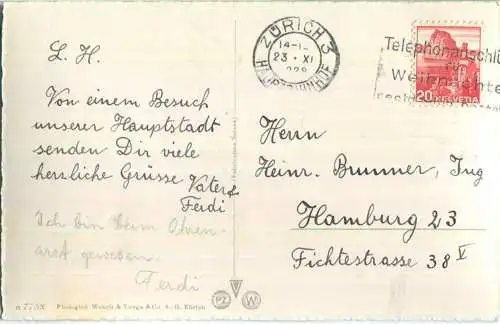 L. H.
Von einem Besuch
unserer Hauptstadt
senden Dir viele
herzliche Grüsse Vater &
Ferdi
Ich bin beim Ohren-
arzt gewesen.
Ferdi
ZÜRICH 3
14-1
23. XI
HAUPTBAHNHOF
Telephonanschlü
für
Weihnachte
20 HELVETIA
Herrn
Heinr. Brunner, Ing
Hamburg 23
Fichtestrasse 38 V
Photogleb Wehrli & Vouga & Co. A.-G. Zürich
PZ W